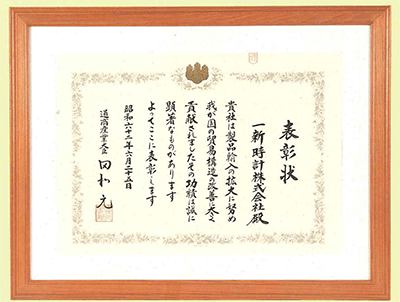 表彰状
一新時計株式会社殿
貴社は製品輸入の拡大に努め
我が国の貿易構造の改善に大きく
貢献されましたその功績は誠に
顕著なものがあります
よってここに表彰します
昭和六十二年六月二十五日
通商産業大臣 田村元